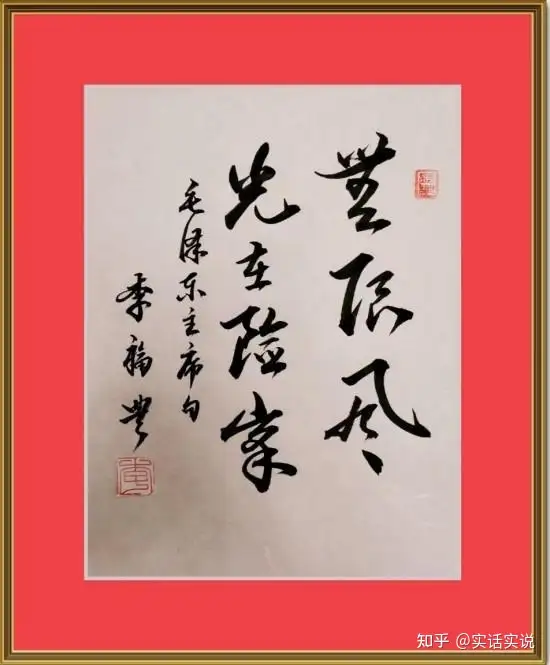 無限风
光在险峯
毛泽东主席句
季福
知乎 @实话实说